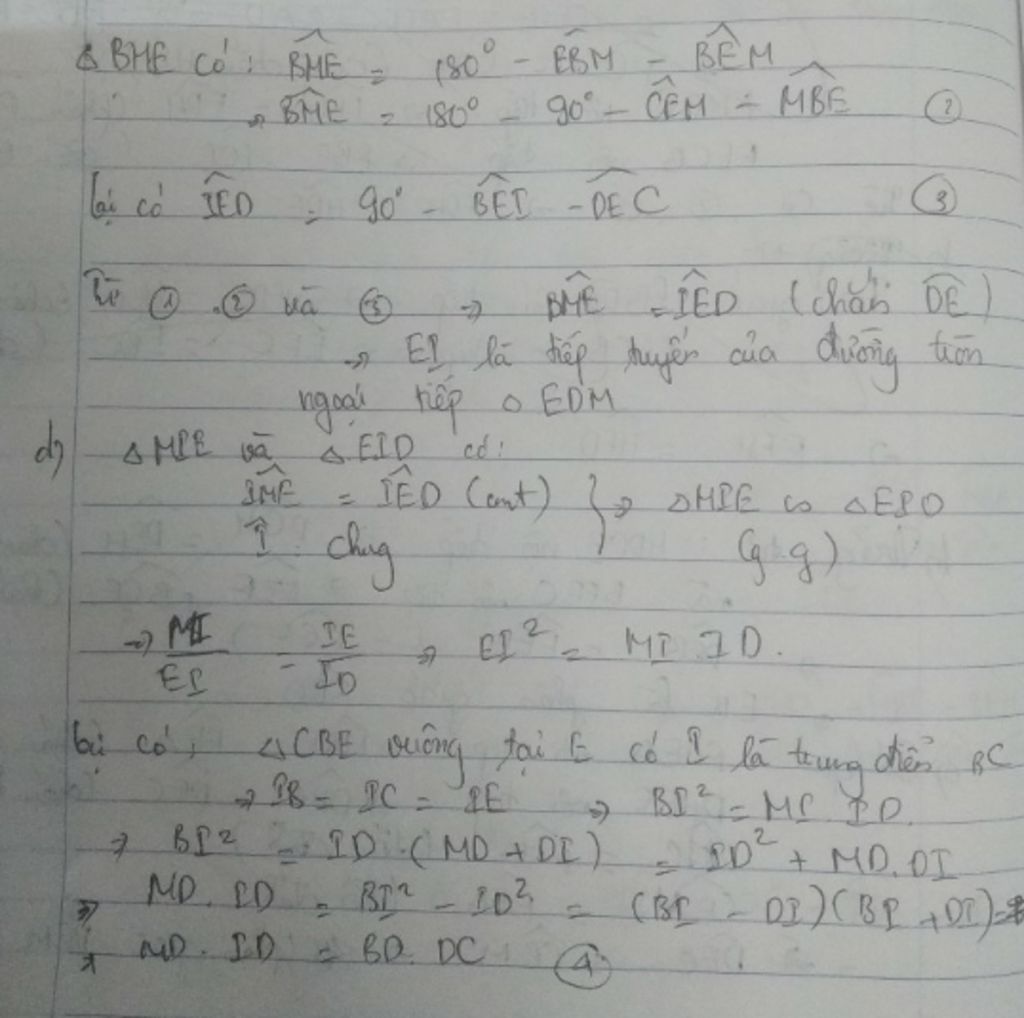 △ BME có: BM̂E = 180° - EB̂M - BÊM
⇒ BM̂E = 180° - 90° - CÊM - MB̂E (2)
lại có IÊD = 90° - BÊI - DÊC (3)
Từ (1), (2) và (3) ⇒ BM̂E = IÊD (chắn DE)
⇒ EI là tiếp tuyến của đường tròn
ngoại tiếp △ EDM
d) △ MIE và △ EID có:
IM̂E = IÊD (cmt) } ⇒ △MIE ∽ △EID
Î : chug (g g)
⇒ MI/EI = IE/ID ⇒ EI² = MI . ID.
lại có, △CBE vuông tại E có I là trung điểm BC
⇒ IB = IC = IE ⇒ BI² = MI . ID.
⇒ BI² = ID . (MD + DI) = ID² + MD.DI
⇒ MD. ID = BI² - ID² = (BI - DI)(BI + DI)=
⇒ MD. ID = BD. DC (4)